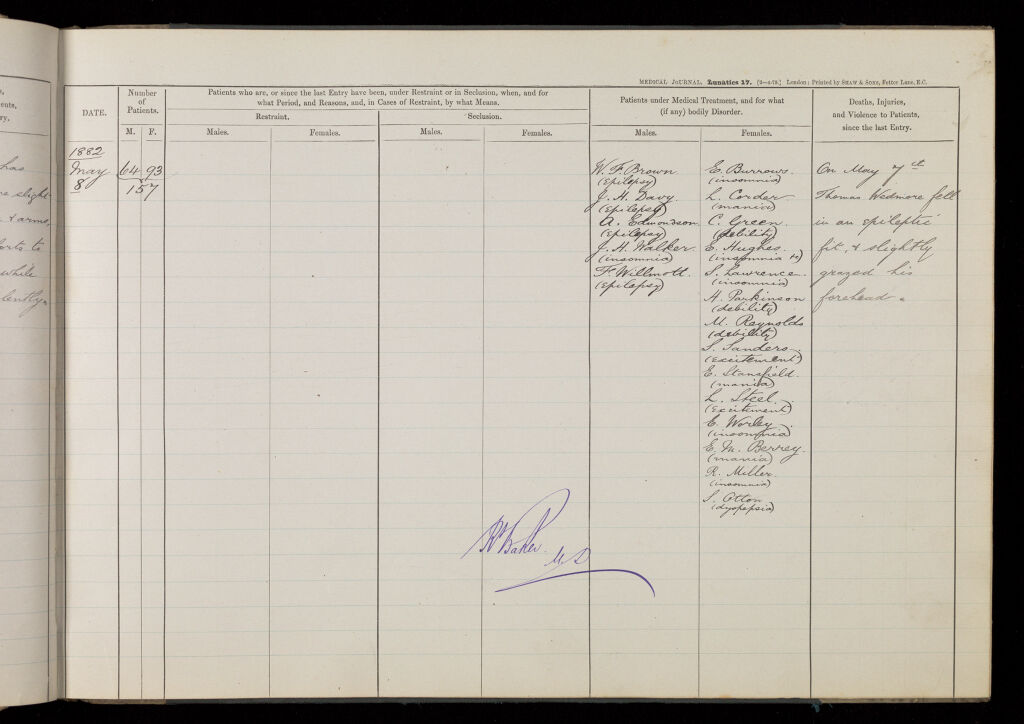 MEDICAL JOURNAL. Lunatics 17. London: Printed by SHAW & SONS, Fetter Lane, E.C.
DATE.
Number
of
Patients.
M. F.
Patients who are, or since the last Entry have been, under Restraint or in Seclusion, when, and for
what Period, and Reasons, and, in Cases of Restraint, by what Means.
Restraint.
Seclusion.
Males.
Females.
Males.
Females.
Patients under Medical Treatment, and for what
(if any) bodily Disorder.
Males.
Females.
Deaths, Injuries,
and Violence to Patients,
since the last Entry.
1882
May
8
64 93
157
W. F. Brown
(Epilepsy)
J. H. Davy
(Epilepsy)
A. Edmondson
(Epilepsy)
J. H. Walker
(insomnia)
F. Willmott.
(Epilepsy)
E. Burrows.
(insomnia)
L. Corder
(mania)
C. Green
(debility)
E. Hughes.
(insomnia
S. Lawrence.
(insomnia)
H. Parkinson
(debility)
M. Reynolds
(debility)
S. Sanders
(excitement)
E. Stansfield.
(mania)
L. Steel.
(Excitement)
E. Worley
(insomnia)
E. M. Berrey.
(mania)
R. Miller.
(insomnia)
S. Otton
(dyspepsia)
On May 7th
Thomas Wedmore fell
in an epileptic
fit, & slightly
grazed his
forehead.
Baker. M.D.
has
slight
& arms,
to
while